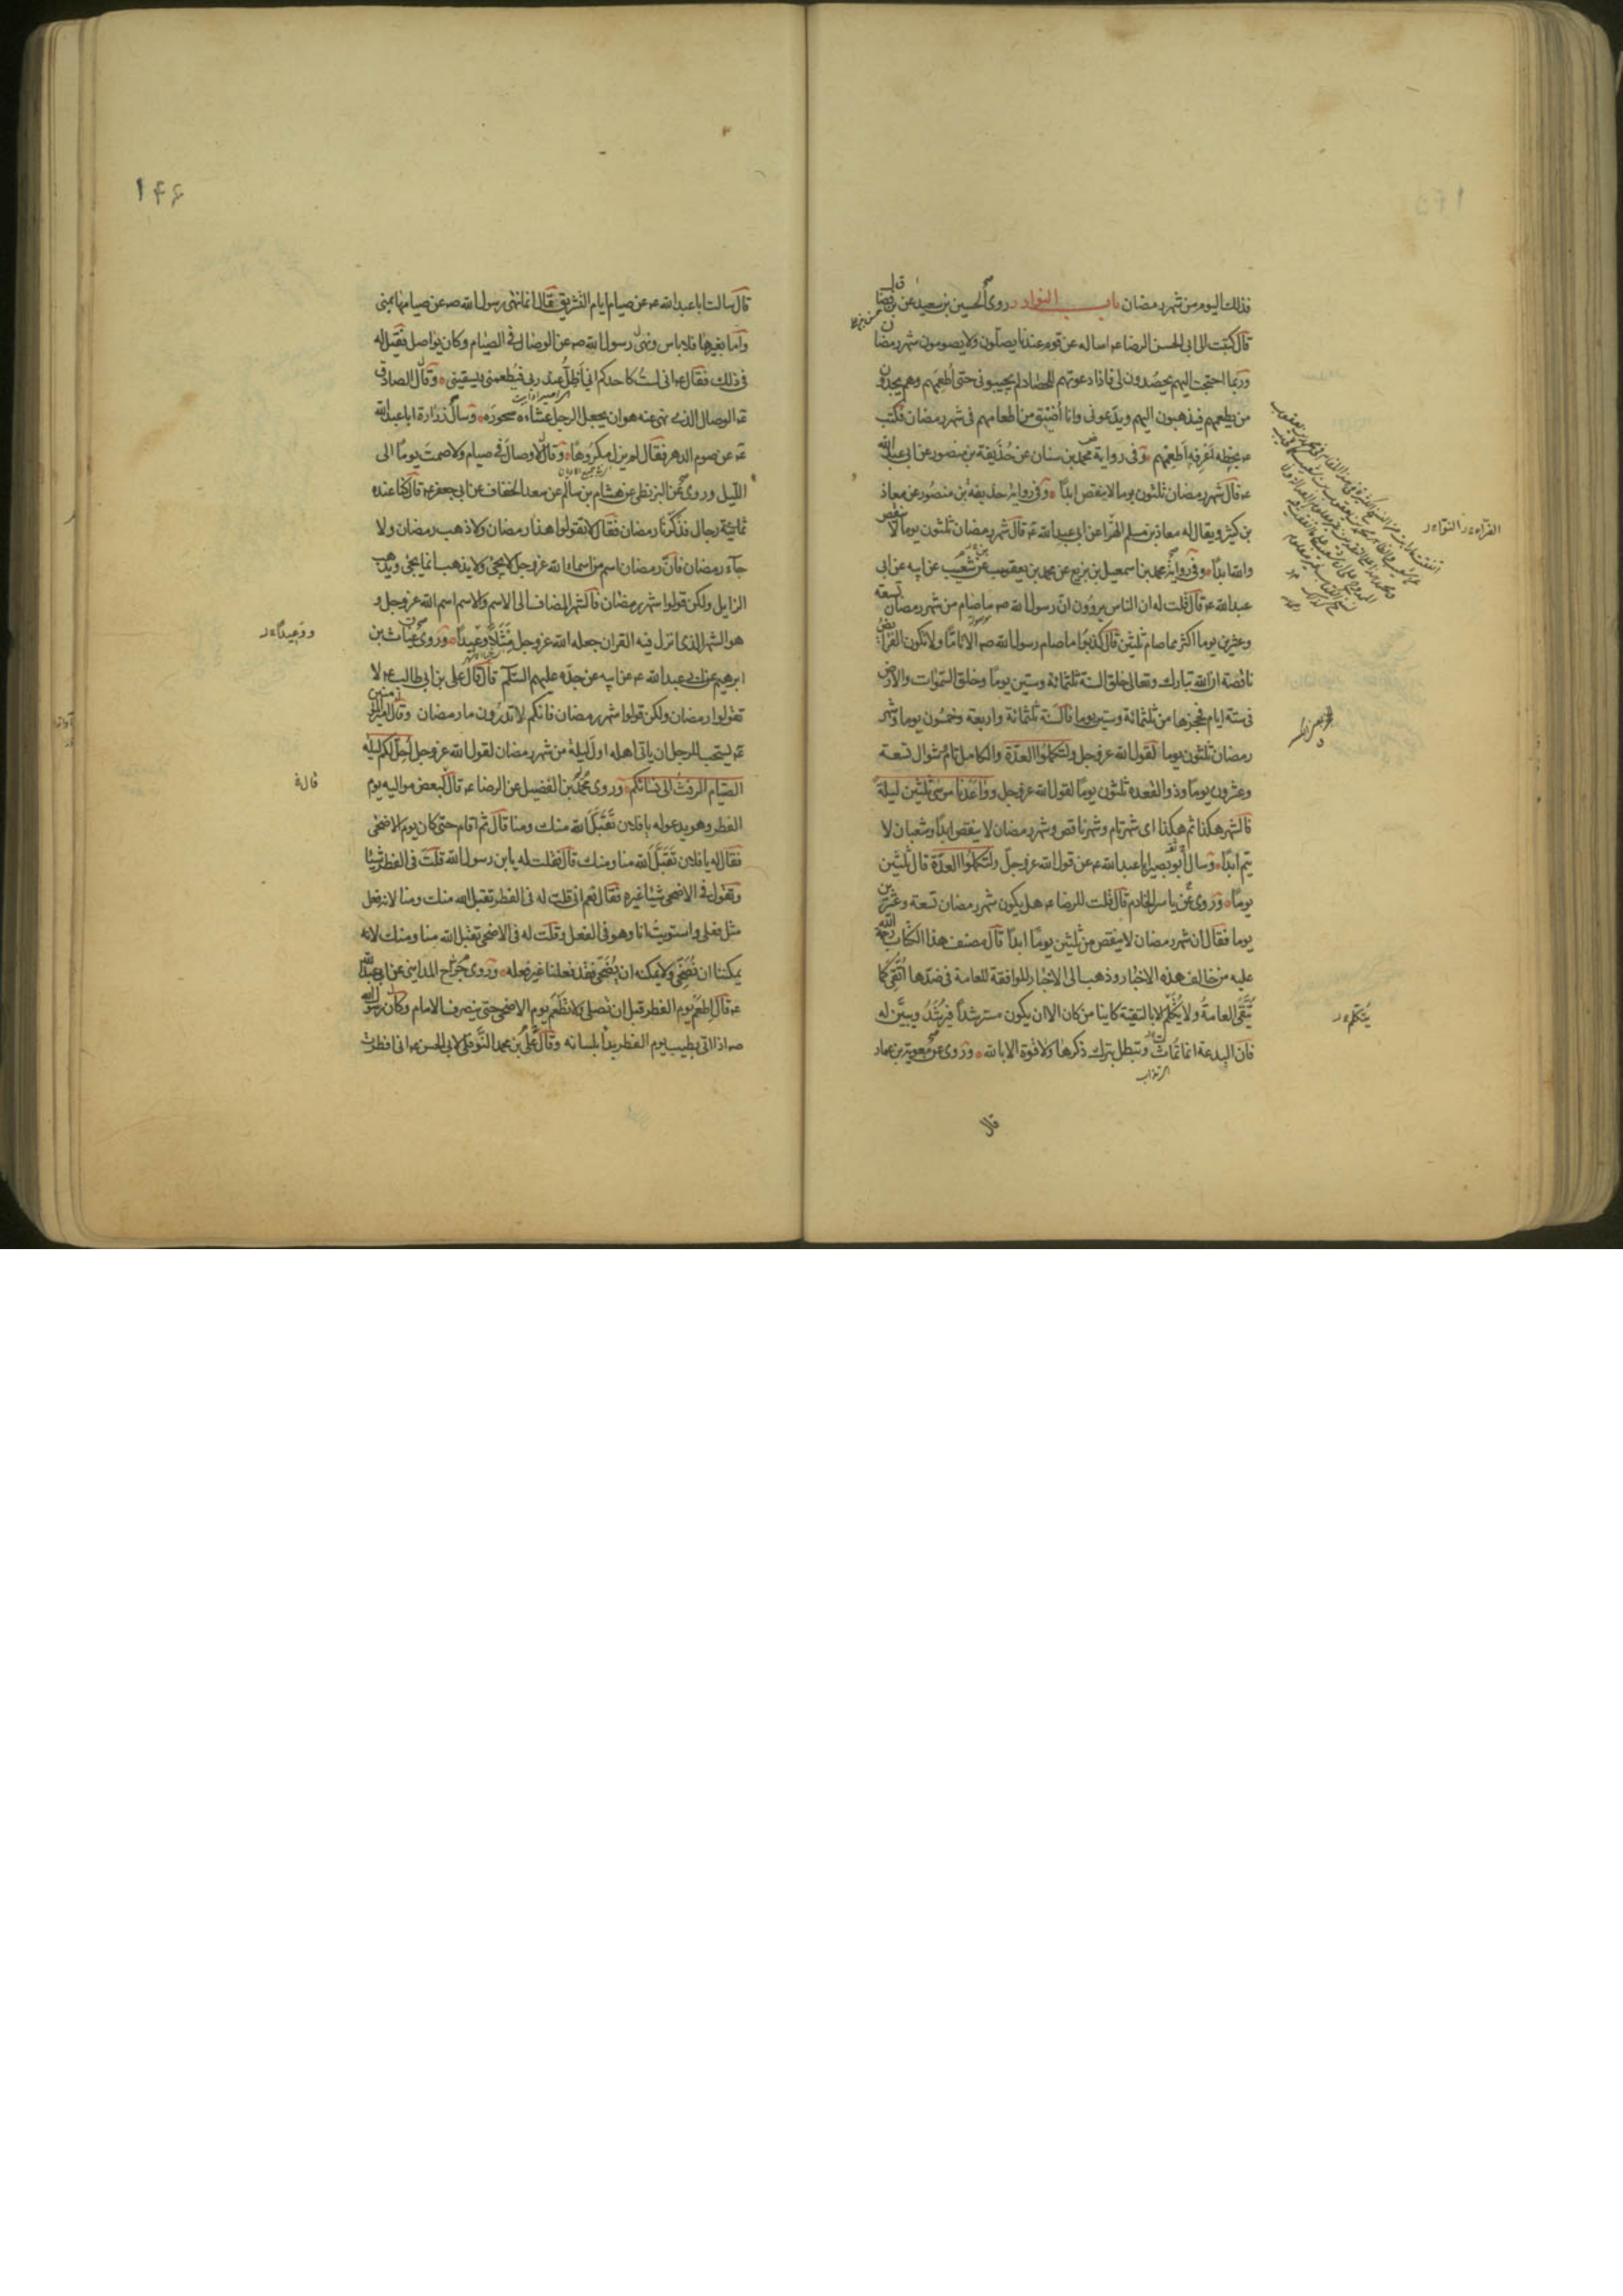 فذلك اليوم من شهر رمضان باب النوادر روى الحسين بن سعيد عن ابن فضال
قال كتبت الى ابى الحسن الرضا عه اساله عن قوم عندنا يصلون ولا يصومون شهر رمضان
وربما احتجت اليهم يحصدون لى فاذا دعوتهم للحصاد لم يجيبونى حتى اطعمهم وهم يجدون
من يطعمهم فيذهبون اليهم ويدعونى وانا اضيق من اطعامهم فى شهر رمضان فكتب
عه بخطه اعرفه اطعمهم وفى رواية محمد بن سنان عن حذيفة بن منصور عن ابى عبدالله
عه قال شهر رمضان ثلثون يوما لا ينقص ابدًا وفى رواية حذيفة بن منصور عن معاذ
بن كثير ويقال له معاذ بن مسلم الهرّا عن ابى عبدالله عه قال شهر رمضان ثلثون يوما لا ينقص
والله ابدًا وفى رواية محمد بن اسمعيل بن بزيع عن محمد بن يعقوب عن شعيب عن ابيه عن ابى
عبدالله عه قال قلت له ان الناس يروون ان رسول الله صه ما صام من شهر رمضان تسعة
وعشرين يوما اكثر مما صام ثلثين قال كذبوا ما صام رسول الله صه الا تامًا ولا تكون الفرائض
ناقصة ان الله تبارك وتعالى خلق السنة ثلثمائة وستين يومًا وخلق السموات والارض
فى ستة ايام فحجزها من ثلثمائة وستين يوما فالسنة ثلثمائة واربعة وخمسون يوما وشهر
رمضان ثلثون يوما لقول الله عز وجل ولتكملوا العدة والكامل تام وشوال تسعة
وعشرون يوما وذو القعدة ثلثون يومًا لقول الله عز وجل وواعدنا موسى ثلثين ليلة
فالشهر هكذا ثم هكذا اى شهر تام وشهر ناقص وشهر رمضان لا ينقص ابدًا وشعبان لا
يتم ابدًا وسال ابو بصير ابا عبدالله عه عن قول الله عز وجل ولتكملوا العدة قال ثلثين
يومًا وروى عن ياسر الخادم قال قلت للرضا عه هل يكون شهر رمضان تسعة وعشرين
يوما فقال ان شهر رمضان لا ينقص من ثلثين يومًا ابدًا قال مصنف هذا الكتاب رحمة الله
عليه من خالف هذه الاخبار وذهب الى الاخبار الموافقة للعامة فى ضدها اتقى كما
يتقى العامة ولا يكلم الا بالتقية كاينا من كان الا ان يكون مسترشدًا فيرشد ويبيّن له
فان البدعة انما تماث وتبطل بترك ذكرها ولا قوة الا بالله وروى عن معوية بن عمار
قال
يتكلم
١٤٦
قال سالت ابا عبدالله عه عن صيام ايام التشريق فقال انما نهى رسول الله صه عن صيامها بمنى
واما بغيرها فلا باس ونهى رسول الله صه عن الوصال فى الصيام وكان يواصل فقيل له
فى ذلك فقال عه انى لست كاحدكم انى اظل عند ربى فيطعمنى ويسقينى وقال الصادق
عه الوصال الذى نهى عنه هو ان يجعل الرجل عشاءه سحوره وسال زرارة ابا عبدالله
عه عن صوم الدهر فقال لم يزل مكروهًا وقال لا وصال فى صيام ولا صمت يومًا الى
الليل وروى عن البزنطى عن هشام بن سالم عن سعد الخفاف عن ابى جعفر عه قال كنا عنده
ثمانية رجال فذكرنا رمضان فقال لا تقولوا هذا رمضان ولا ذهب رمضان ولا
جآء رمضان فان رمضان اسم من اسماء الله عز وجل لا يجئ ولا يذهب انما يجئ ويذهب
الزايل ولكن قولوا شهر رمضان فالشهر المضاف الى الاسم والاسم اسم الله عز وجل و
هو الشهر الذى انزل فيه القران جعله الله عز وجل مثلًا وعيدًا وروى غياث بن
ابرهيم عن ابى عبدالله عه عن ابيه عن جده عليهم السلم قال قال على بن ابى طالب عه لا
تقولوا رمضان ولكن قولوا شهر رمضان فانكم لا تدرون ما رمضان وقال امير المؤمنين
عه يستحب للرجل ان ياتى اهله اول ليلة من شهر رمضان لقول الله عز وجل احل لكم ليلة
الصيام الرفث الى نسائكم وروى محمد بن الفضيل عن الرضا عه قال لبعض مواليه يوم
الفطر وهو يدعو له يا فلان تقبل الله منك ومنا قال ثم اقام حتى كان يوم الاضحى
فقال له يا فلان تقبل الله منا ومنك قال فقلت له يا بن رسول الله قلت فى الفطر شيئا
وتقول فى الاضحى شيئا غيره فقال نعم انى قلت له فى الفطر تقبل الله منك ومنا لانه فعل
مثل فعلى واستويت انا وهو فى الفعل وقلت له فى الاضحى تقبل الله منا ومنك لانه
يمكننا ان نضحى ولا يمكنه ان يضحى فقد فعلنا غير فعله وروى جراح المداينى عن ابى عبدالله
عه قال اطعم يوم الفطر قبل ان تصلى ولا تطعم يوم الاضحى حتى ينصرف الامام وكان رسول الله
صه اذا اتى بطيب يوم الفطر بدأ بلسانه وقال على بن محمد النوفلى لابى الحسن عه انى افطرت
ووعيدًا
قال